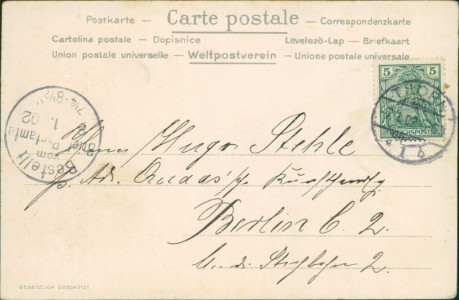 Postkarte — Carte postale — Correspondenzkarte
Cartolina postale — Dopisnice Levelező-Lap — Briefkaart
Union postale universelle — Weltpostverein — Unione postale universale
5 5
REICHSPOST
THORN
Bestellt
vom
Postamte
1.02
Herrn Hugo Stehle
p. Adr.
Berlin C. 2.
2
GESETZLICH GESCHÜTZT.